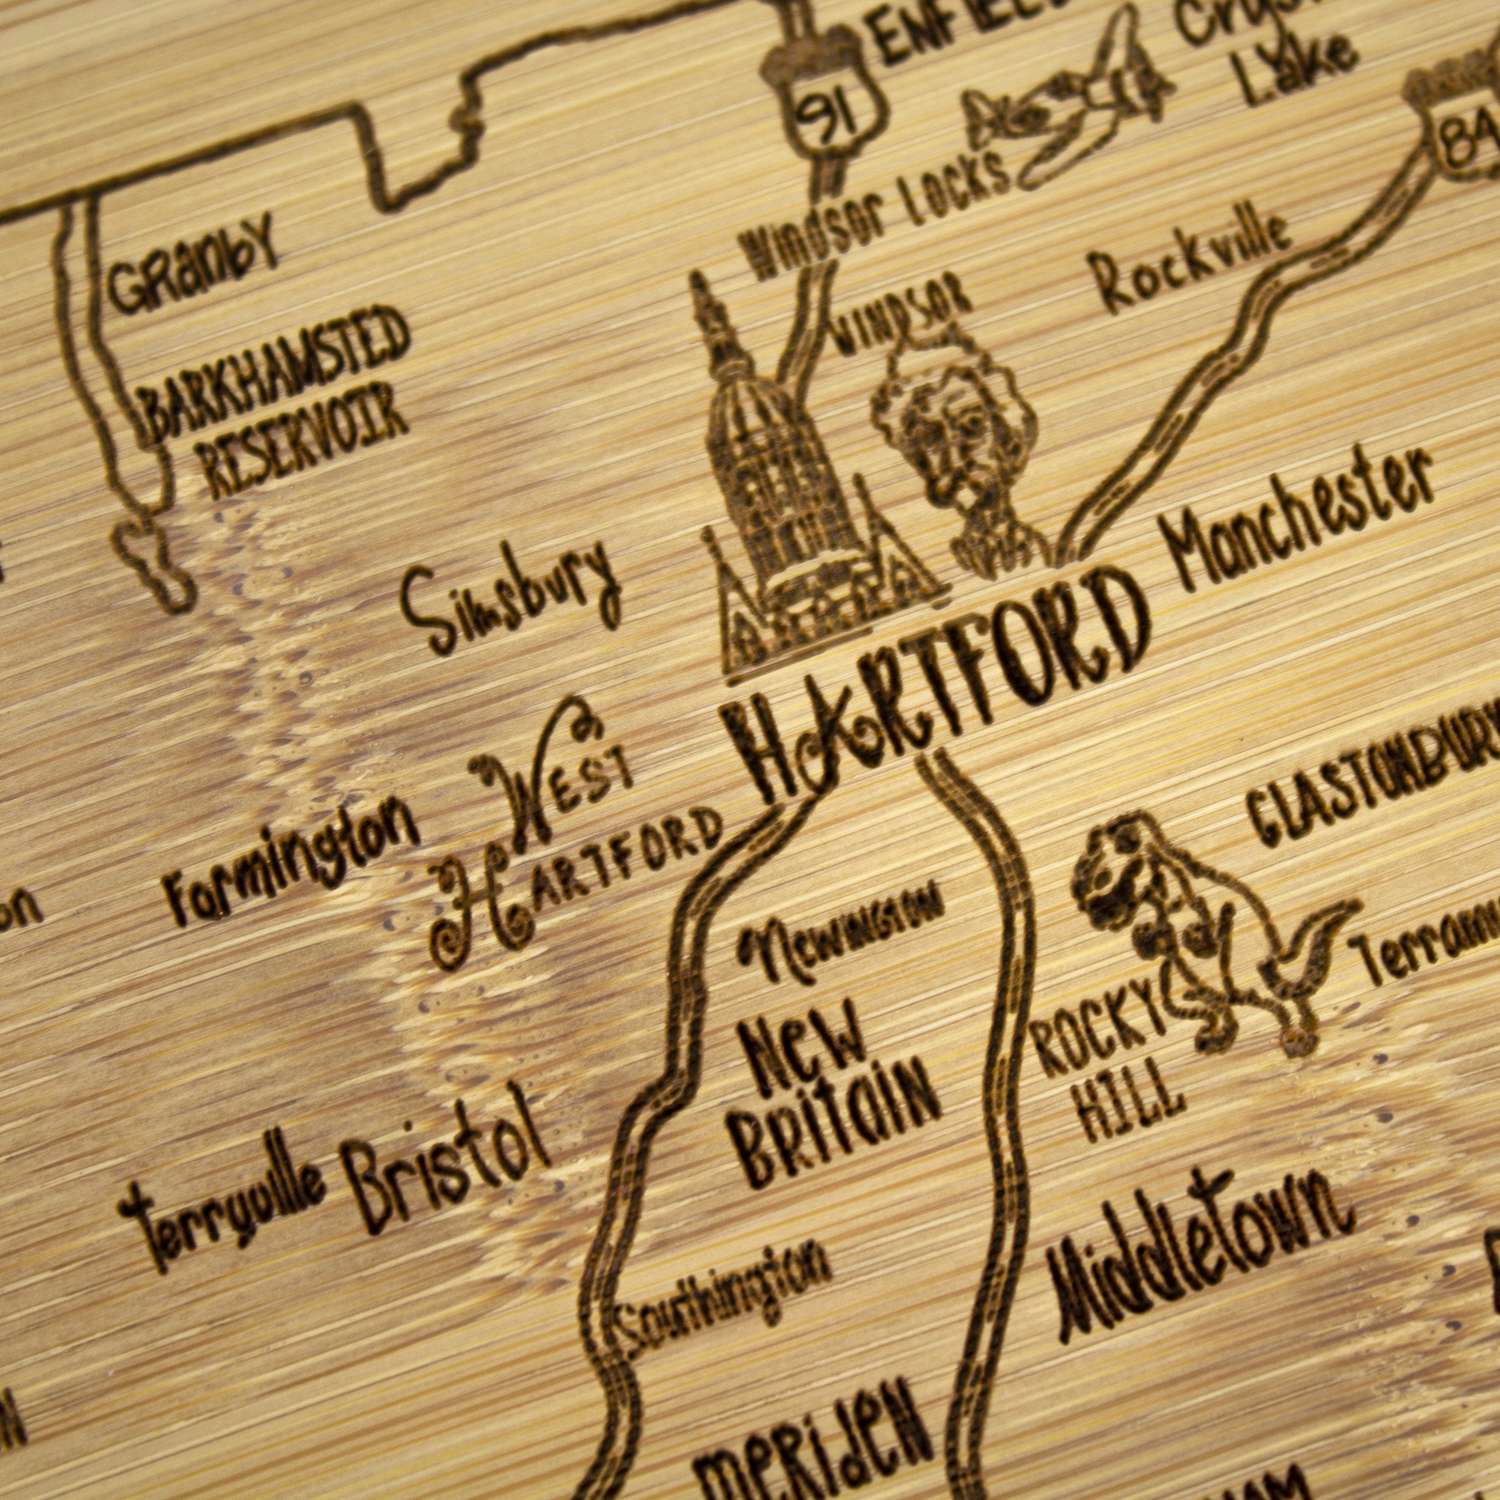 ENFIELD
91
Lake
84
Windsor Locks
GRanbY
Rockville
WINDSOR
BARKHAMSTED
RESERVOIR
Manchester
Simsbury
HARTFORD
WEST
HARTFORD
GLASTONBURY
Farmington
Newington
ROCKY
HILL
New
BRitain
Terryville
Bristol
Middletown
Southington
MERiDEN